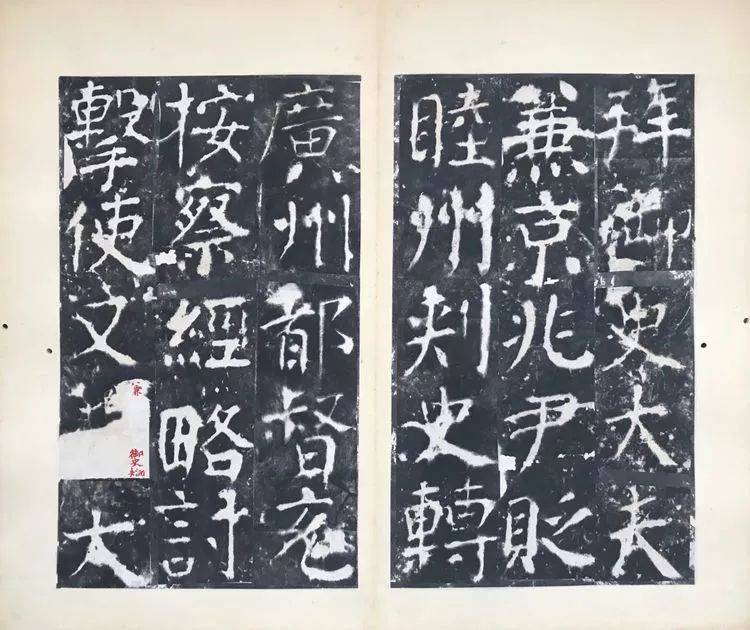 拜御史大夫
兼京兆尹貶
睦州刺史轉
廣州都督充
按察經略討
擊使又
兼
御史
大